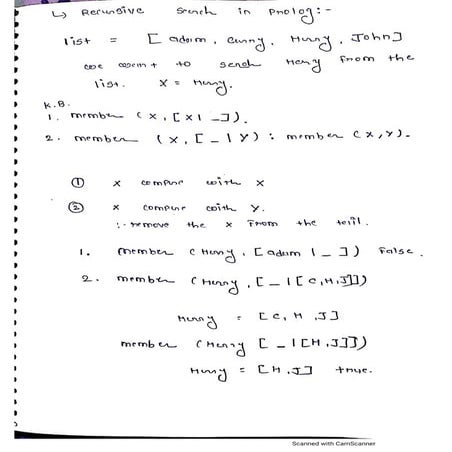 ↳ Recursive search in Prolog:-
list = [adam, cunny, Hurry, John]
we want to serch Hery from the
list. X = Hurry.
K.B.
1. member (x, [x1_]).
2. member (x, [_|Y) : member (x,y).
① x compure with x
② x compure with y.
:- remove the x from the teill.
1. member (Hurry, [adam | _]) False.
2. member (Hurry, [_|[C,H,J]])
Hurry = [C, H, J]
member (Hurry [_|[H,J]])
Hurry = [H,J] true.
Scanned with CamScanner